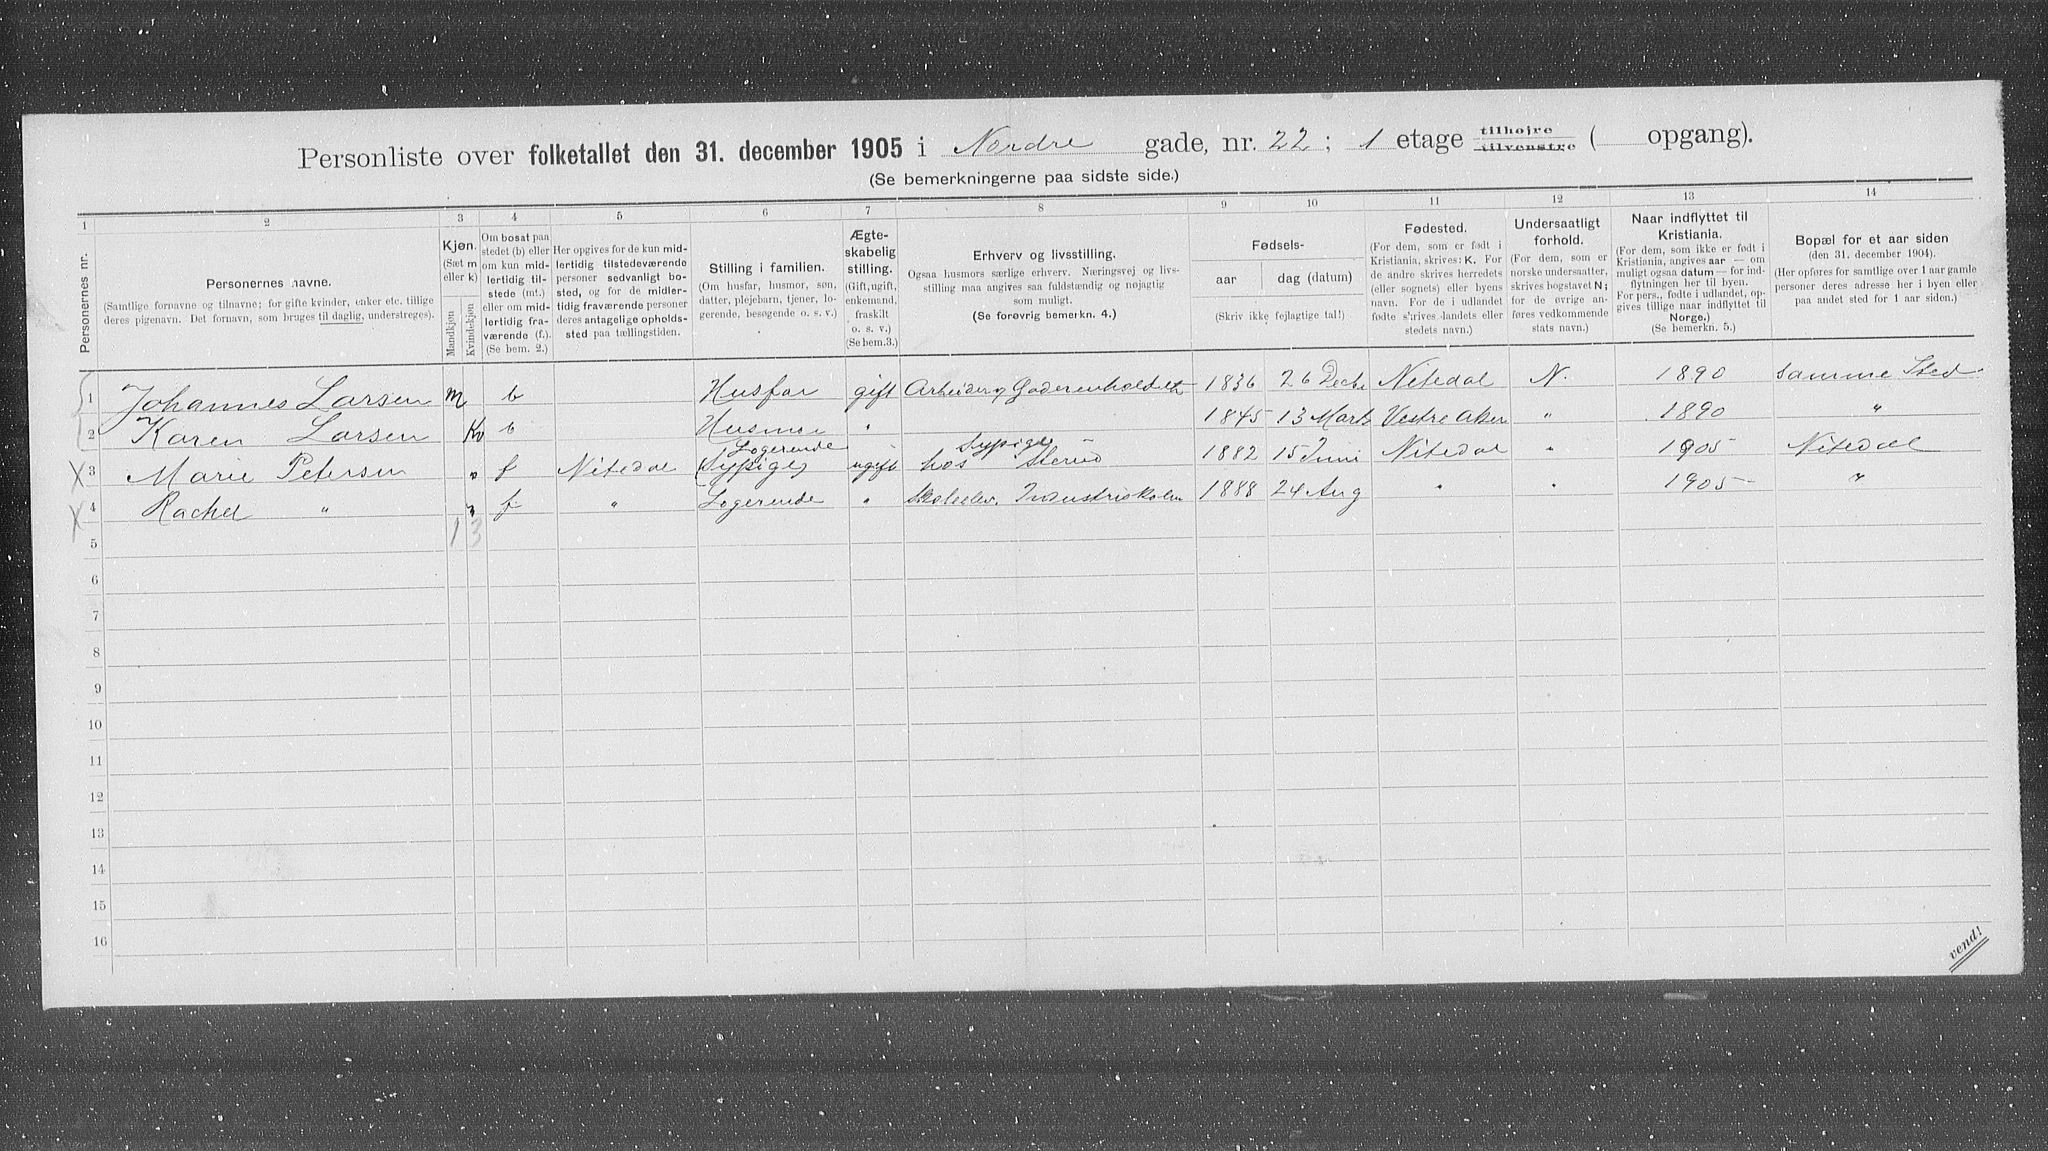 Personliste over folketallet den 31. december 1905 i Nordre gade, nr. 22; 1 etage tilhøjre tilvenstre ( opgang).
(Se bemerkningerne paa sidste side.)
1 2 3 4 5 6 7 8 9 10 11 12 13 14
Personernes nr.
Personernes navne.
(Samtlige fornavne og tilnavne; for gifte kvinder, enker etc. tillige
deres pigenavn. Det fornavn, som bruges til daglig, understreges).
Kjøn.
(Sæt m
eller k)
Mandkjøn
Kvindekjøn
Om bosat paa
stedet (b) eller
om kun mid-
lertidig til-
stede (mt.)
eller om mid-
lertidig fra-
værende (f.)
(Se bem. 2.)
Her opgives for de kun mid-
lertidig tilstedeværende
personer sedvanlig bo-
sted, og for de midler-
tidig fraværende personer
deres antagelige opholds-
sted paa tællingstiden.
Stilling i familien.
(Om husfar, husmor, søn,
datter, plejebarn, tjener, lo-
gerende, besøgende o. s. v.)
Ægte-
skabelig
stilling.
(Gift, ugift,
enkemand,
fraskilt
o. s. v.)
(Se bem.3.)
Erhverv og livsstilling.
Ogsaa husmors særlige erhverv. Næringsvej og livs-
stilling maa angives saa fuldstændig og nøjagtig
som muligt.
(Se forøvrig bemerkn. 4.)
Fødsels-
aar
dag (datum)
(Skriv ikke fejlagtige tal!)
Fødested.
(For dem, som er født i
Kristiania, skrives: K. For
de andre skrives herredets
(eller sognets) eller byens
navn. For de i udlandet
fødte skrives landets eller
stedets navn.)
Undersaatligt
forhold.
(For dem, som er
norske undersaatter,
skrives bogstavet N;
for de øvrige an-
føres vedkommende
stats navn.)
Naar indflyttet til
Kristiania.
(For dem, som ikke er født i
Kristiania, angives aar — om
muligt ogsaa datum — for ind-
flytningen her til byen.
For pers., fødte i udlandet, op-
gives tillige naar indflyttet til
Norge.)
(Se bemerkn. 5.)
Bopæl for et aar siden
(den 31. december 1904).
(Her opføres for samtlige over 1 aar gamle
personer deres adresse her i byen eller
paa andet sted for 1 aar siden.)
1 Johannes Larsen m b Husfar gift Arbeider 1836 26 Decbr Nitedal N. 1890 samme Sted
2 Karen Larsen k b Husmor " 1845 13 Marts Vestre Aker " 1890 "
Logerende Sypige
3 Marie Petersen " f Nitedal (Sypige) ugift hos 1882 15 Juni Nitedal " 1905 Nitedal
4 Rachel " " f " Logerende " Skoleelev. Industriskolen 1888 24 Aug " " 1905 "
1 3
5
6
7
8
9
10
11
12
13
14
15
16
vend!